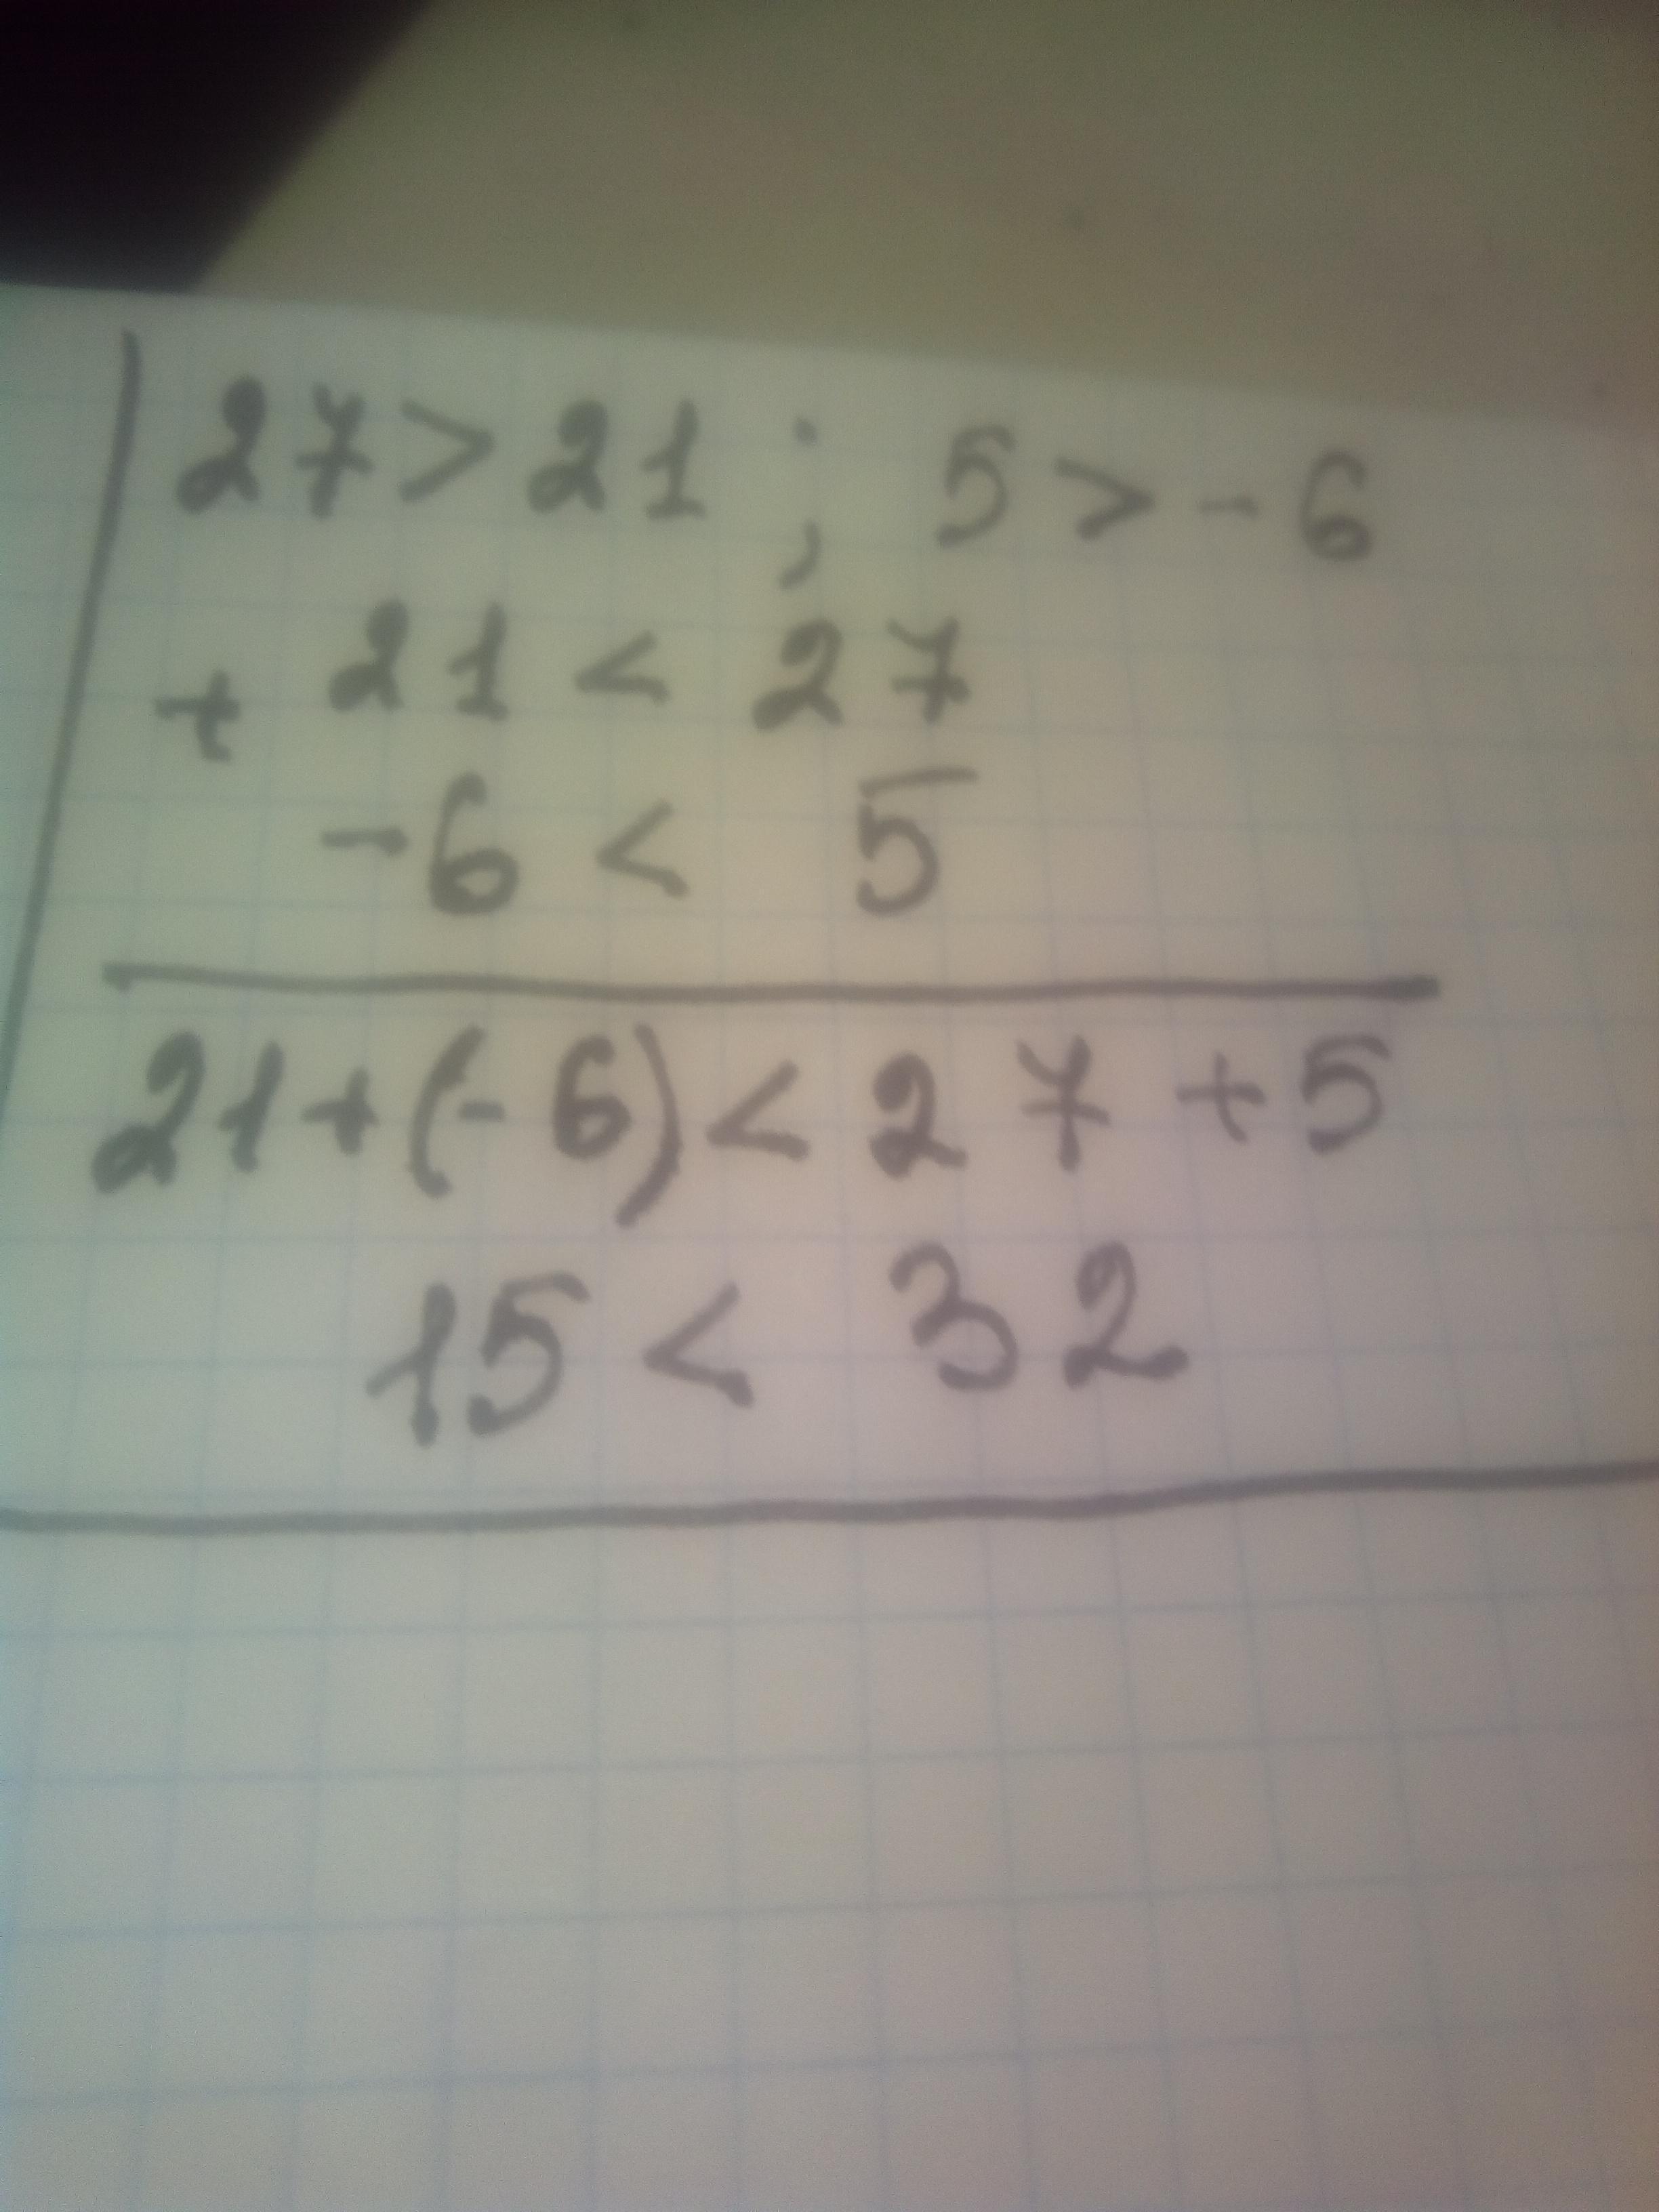 27 > 21 ; 5 > - 6
+ 21 < 27
-6 < 5
21 + (-6) < 27 + 5
15 < 32